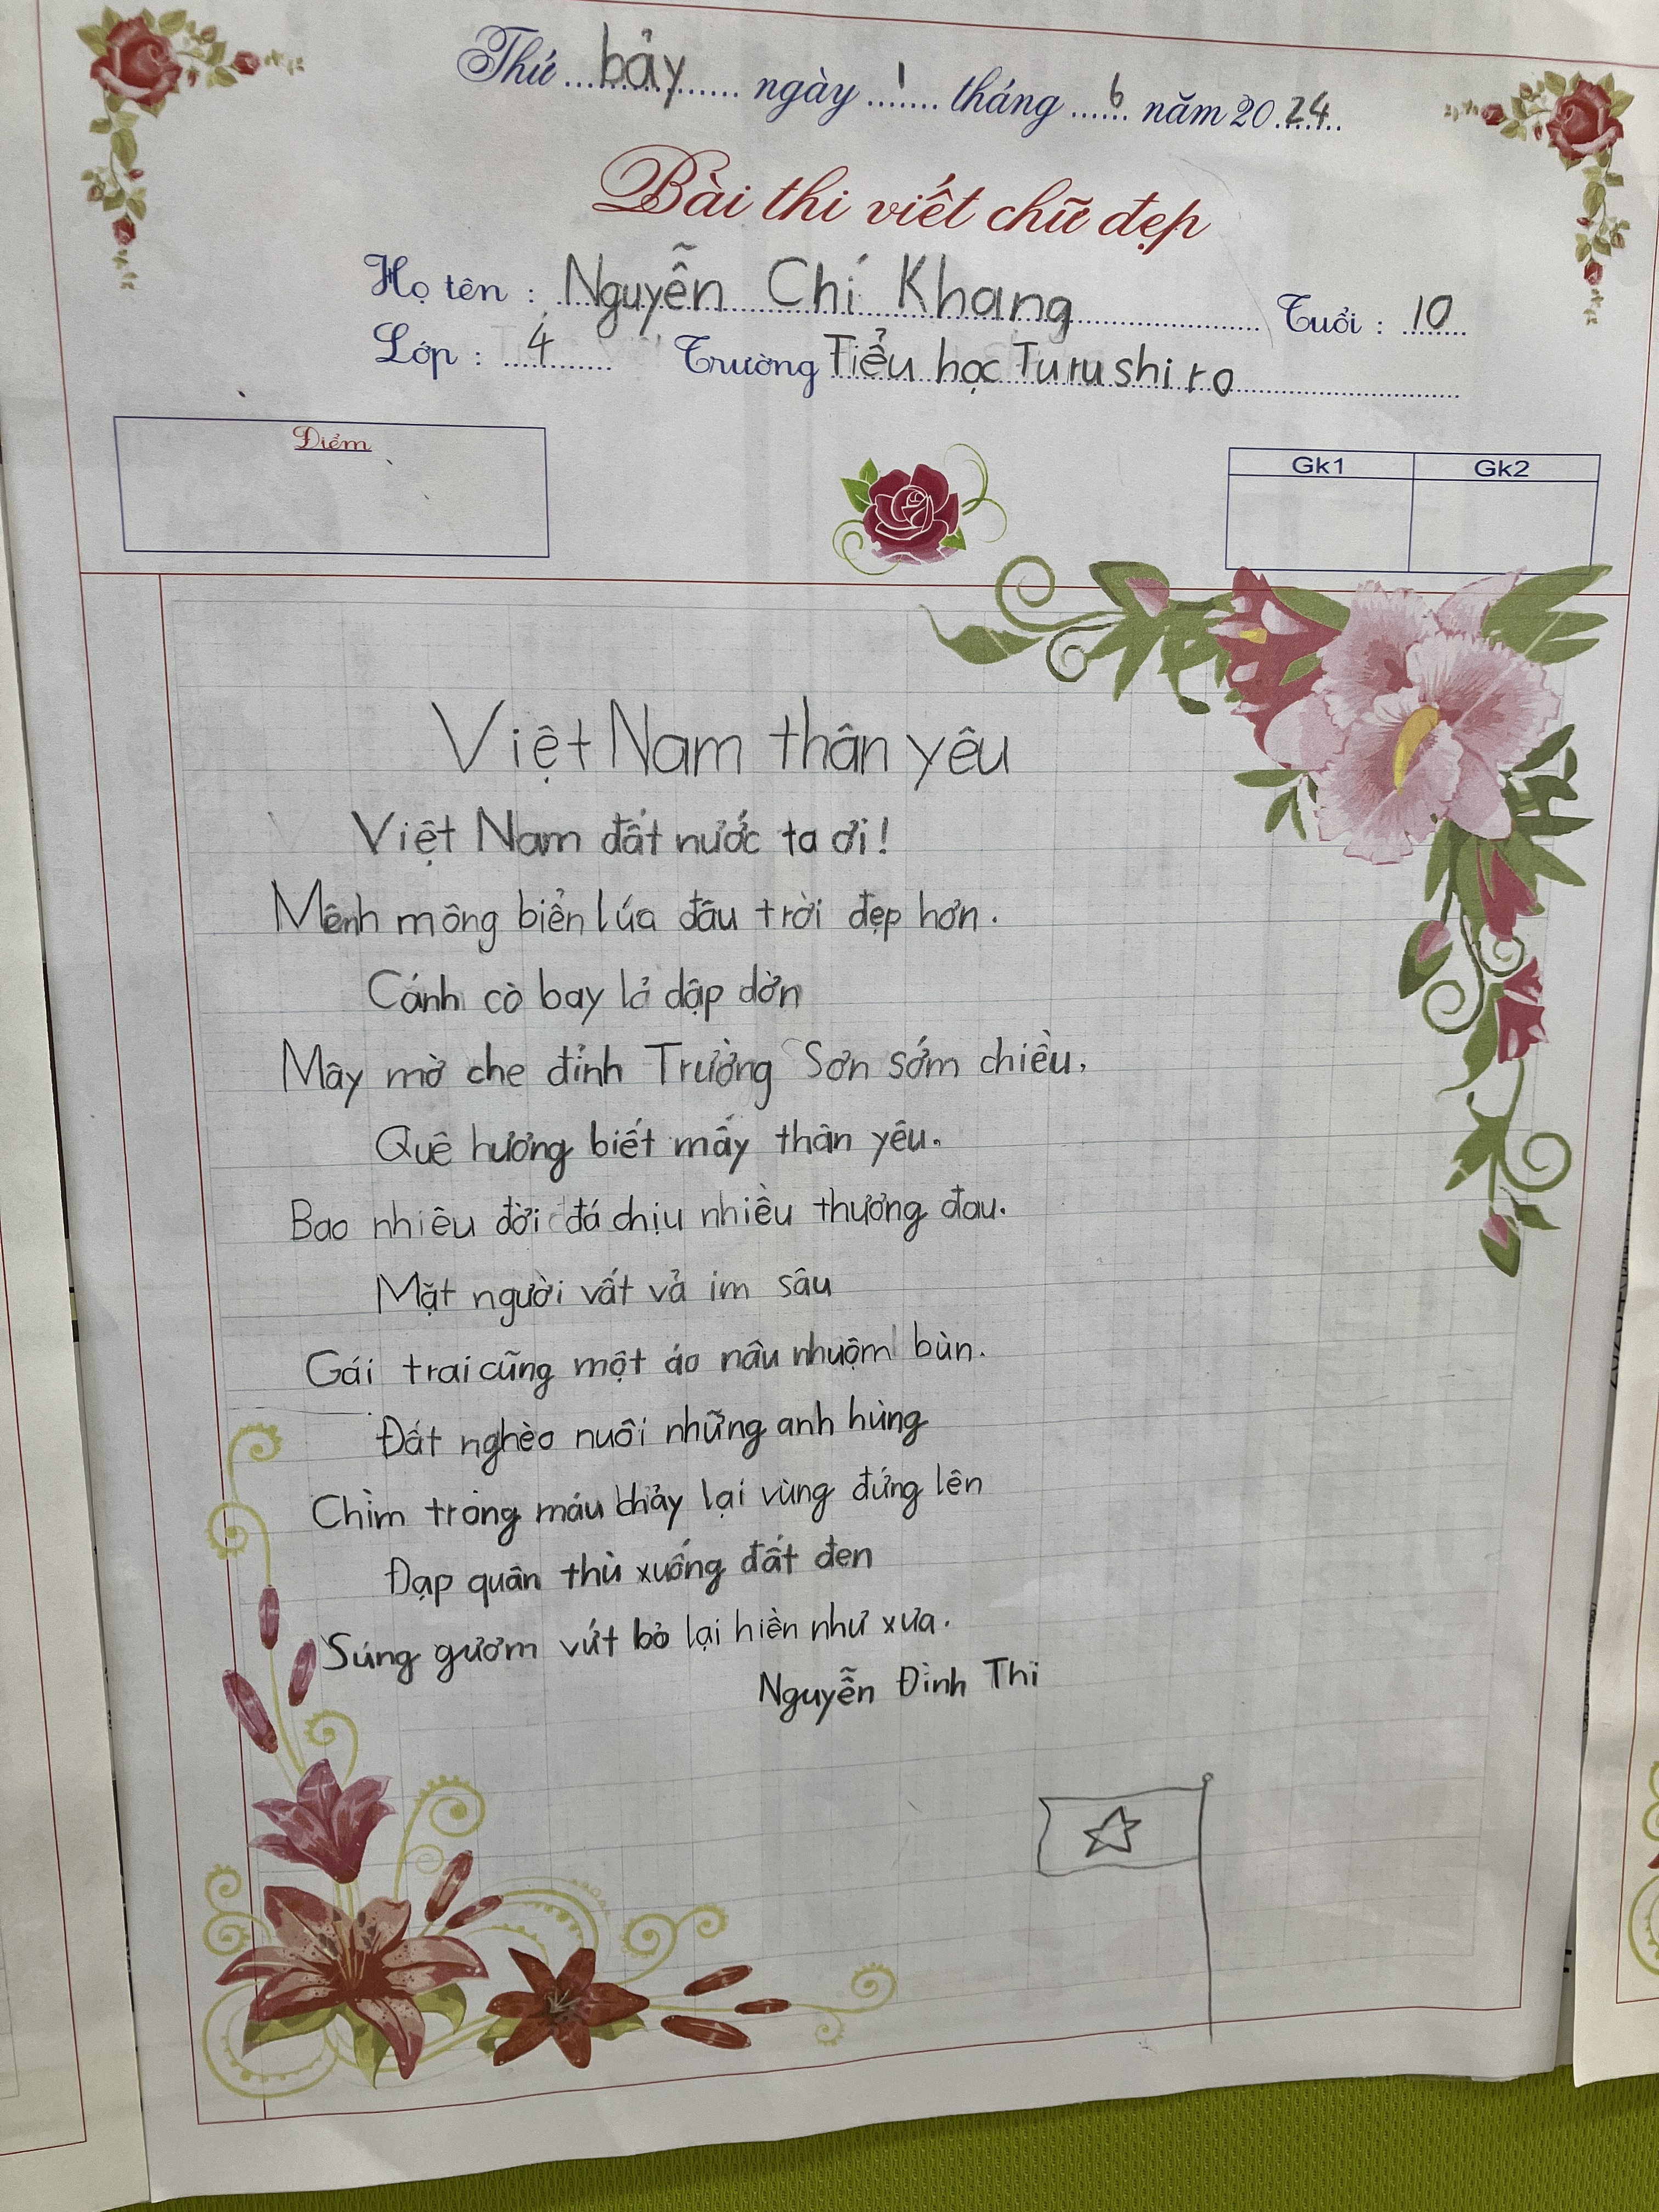 Thứ bảy ngày 1 tháng 6 năm 2024
Bài thi viết chữ đẹp
Họ tên : Nguyễn Chí Khang Tuổi : 10
Lớp : 4 Trường Tiểu học Turushiro
Điểm
Gk1 Gk2
Việt Nam thân yêu
Việt Nam đất nước ta ơi!
Mênh mông biển lúa đâu trời đẹp hơn.
Cánh cò bay lả dập dờn
Mây mờ che đỉnh Trường Sơn sớm chiều.
Quê hương biết mấy thân yêu.
Bao nhiêu đời đá chịu nhiều thương đau.
Mặt người vất vả im sâu
Gái trai cũng một áo nâu nhuộm bùn.
Đất nghèo nuôi những anh hùng
Chìm trong máu chảy lại vùng đứng lên
Đạp quân thù xuống đất đen
Súng gươm vứt bỏ lại hiền như xưa.
Nguyễn Đình Thi